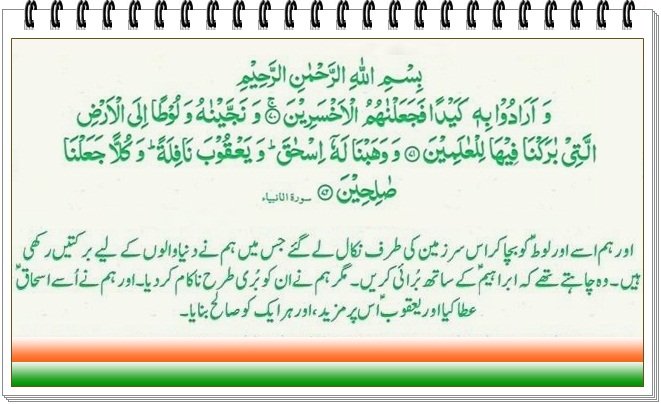 بِسْمِ اللهِ الرَّحْمٰنِ الرَّحِيْمِ
وَ اَرَادُوْا بِهٖ كَيْدًا فَجَعَلْنٰهُمُ الْاَخْسَرِيْنَ ۚ﴿۷۰﴾ وَ نَجَّيْنٰهُ وَ لُوْطًا اِلَى الْاَرْضِ
الَّتِيْ بٰرَكْنَا فِيْهَا لِلْعٰلَمِيْنَ ﴿۷۱﴾ وَ وَهَبْنَا لَهٗۤ اِسْحٰقَ ؕ وَ يَعْقُوْبَ نَافِلَةً ؕ وَ كُلًّا جَعَلْنَا
صٰلِحِيْنَ ﴿۷۲﴾ سورة الانبياء
اور ہم اسے اور لوطؑ کو بچا کر اس سرزمین کی طرف نکال لے گئے جس میں ہم نے دنیا والوں کے لیے برکتیں رکھی
ہیں۔ وہ چاہتے تھے کہ ابراہیمؑ کے ساتھ بُرائی کریں۔ مگر ہم نے ان کو بُری طرح ناکام کر دیا۔ اور ہم نے اُسے اسحاقؑ
عطا کیا اور یعقوبؑ اس پر مزید، اور ہر ایک کو صالح بنایا۔